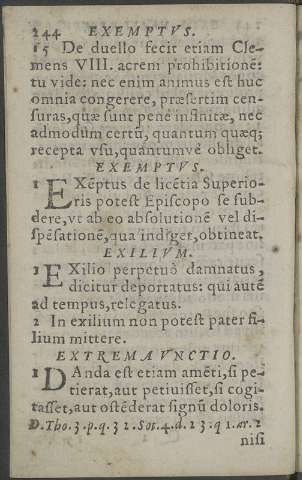 244 EXEMPTVS.
15 De duello fecit etiam Cle-
mens VIII. acrem prohibitionẽ:
tu vide: nec enim animus est huc
omnia congerere, præsertim cen-
suras, quæ sunt penè infinitæ, nec
admodum certũ, quantum quæq;
recepta vsu, quantumvè obliget.
EXEMPTVS.
1 EXẽptus de licẽtia Superio-
ris potest Episcopo se sub-
dere, vt ab eo absolutionẽ vel di-
spẽsationẽ, qua indiget, obtineat.
EXILIVM.
1 EXilio perpetuò damnatus,
dicitur deportatus: qui autẽ
ad tempus, relegatus.
2 In exilium non potest pater fi-
lium mittere.
EXTREMA VNCTIO.
1 DAnda est etiam amẽti, si pe-
tierat, aut petiuisset, si cogi-
tasset, aut ostẽderat signũ doloris.
D. Tho. 3. p. q. 32. Sot. 4. d. 23. q 1. ar. 2
nisi